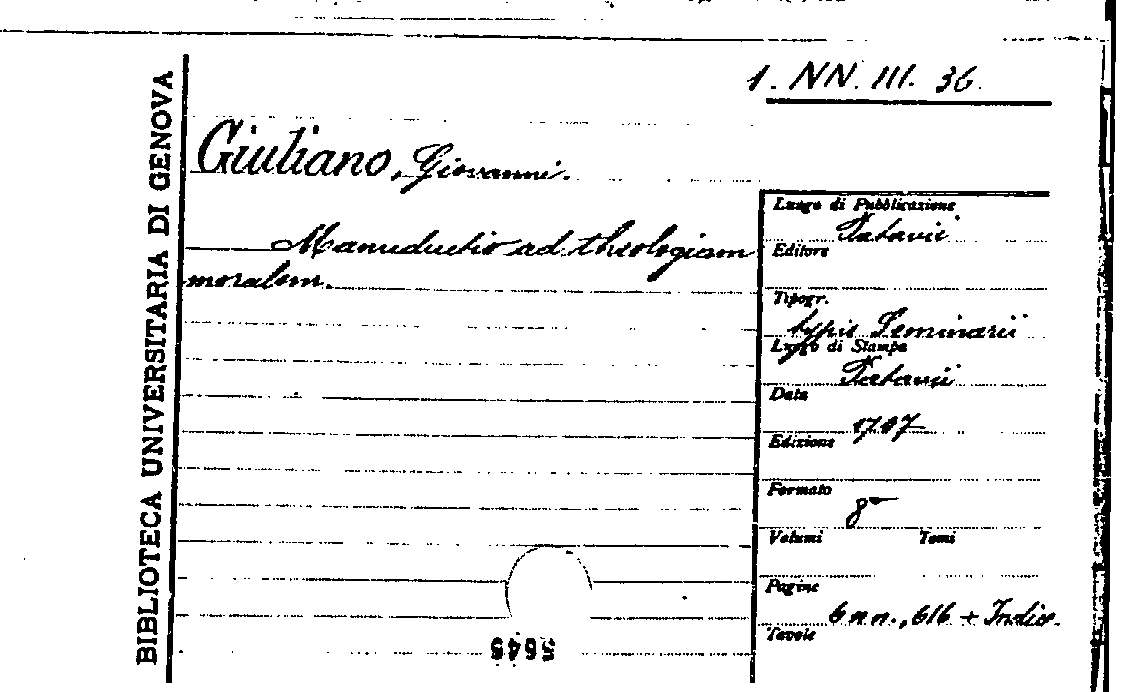 1. NN. III. 36.
BIBLIOTECA UNIVERSITARIA DI GENOVA
Giuliano, Giovanni.
Manuductio ad theologiam
moralem.
Luogo di Pubblicazione
Patavii
Editore
Tipogr.
typis Seminarii
Luogo di Stampa
Patavii
Data
1707
Edizione
Formato
8°
Volumi Tomi
Pagine
6 nn., 616 + Indice.
Tavole